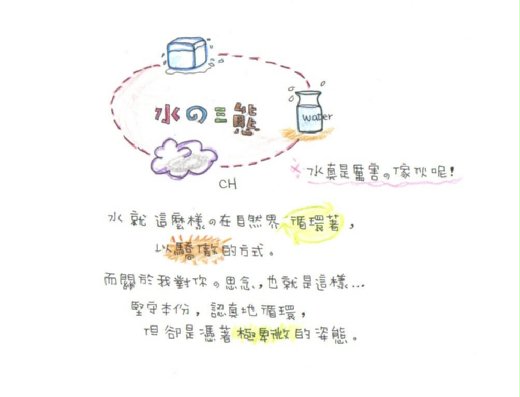 水の三態
water
CH
×水真是厲害の傢伙呢!
水就這麼樣の在自然界循環著,
以驕傲的方式。
而關於我對你の思念,也就是這樣...
堅守本份,認真地循環,
但卻是憑著極卑微的姿態。